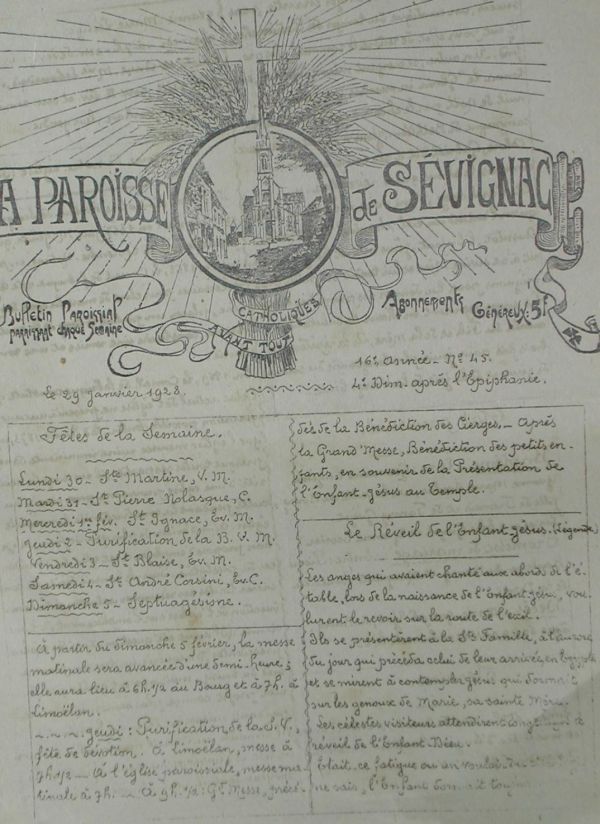 A PAROISSE
de SÉVIGNAC
Bulletin Paroissial
paraissant chaque Semaine
CATHOLIQUES
AVANT TOUT
Abonnements
Généreux: 5f
16e année - No 45.
Le 29 janvier 1928.
4e Dim. après l'Epiphanie.
Fêtes de la Semaine.
Lundi 30 - Ste Martine, V. M.
Mardi 31 - St Pierre Nolasque, C.
Mercredi 1er fév. St Ignace, Ev. M.
Jeudi 2 - Purification de la B. V. M.
Vendredi 3 - St Blaise, Ev. M.
Samedi 4 - St André Corsini, Ev. C.
Dimanche 5 - Septuagésime.
A partir du dimanche 5 février, la messe
matinale sera avancée d'une demi-heure ;
elle aura lieu à 6h.1/2 au Bourg et à 7h. à
Limoëlan.
jeudi : Purification de la S. V.,
fête de dévotion. A Limoëlan, messe à
7h1/2 - A l'église paroissiale, messe ma-
tinale à 7h. - A 9h.1/2 : Gd Messe, précé-
dée de la Bénédiction des Cierges. - Après
la Grand'Messe, Bénédiction des petits en-
fants, en souvenir de la Présentation de
l'Enfant-Jésus au Temple.
Le Réveil de l'Enfant-Jésus. (Légende)
Les anges qui avaient chanté aux abords de l'é-
table, lors de la naissance de l'Enfant-Jésus, vou-
lurent le revoir sur la route de l'exil.
Ils se présentèrent à la Ste Famille, à l'aurore
du jour qui précéda celui de leur arrivée en Egypte
et se mirent à contempler Jésus qui dormait
sur les genoux de Marie, sa sainte Mère.
Les célestes visiteurs attendirent longtemps le
réveil de l'Enfant-Dieu.
Etait-ce fatigue ou un vouloir
ne sais, l'Enfant dormait